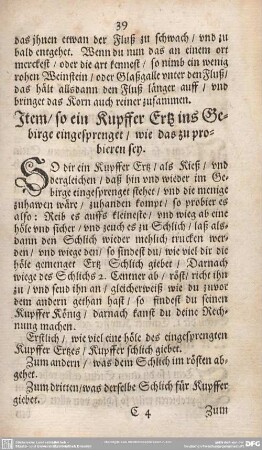 39
das jhnen etwan der Fluß zu schwach / vnd zu
bald entgehet. Wenn du nun das an einem ort
merckest / oder die art kennest / so nimb ein wenig
rohen Weinstein / oder Glaßgalle vnter den Fluß /
das hält allsdann den Fluß länger auff / vnd
bringet das Korn auch reiner zusammen.
Item / so ein Kupffer Ertz ins Ge-
birge eingesprenget / wie das zu pro-
bieren sey.
SO dir ein Kupffer Ertz / als Kieß / vnd
dergleichen / daß hin vnd wieder im Ge-
birge eingesprenget stehet / vnd die menige
zuhawen wäre / zuhanden kompt / so probier es
also: Reib es auffs kleineste / vnd wieg ab eine
höle vnd sicher / vnd zeuch es zu Schlich / laß als-
dann den Schlich wieder mehlich trucken wer-
den / vnd wiege den / so findest du / wie viel dir die
höle gemenget Ertz Schlich giebet / Darnach
wiege des Schlichs 2. Centner ab / röst / richt ihn
zu / vnd send ihn an / gleicherweiß wie du zuvor
dem andern gethan hast / so findest du seinen
Kupffer König / darnach kanst du deine Rech-
nung machen.
Erstlich / wie viel eine höle des eingesprengten
Kupffer Ertzes / Kupffer schlich giebet.
Zum andern / was dem Schlich im rösten ab-
gehet.
Zum dritten / was derselbe Schlich für Kupffer
giebet.
C 4 Zum